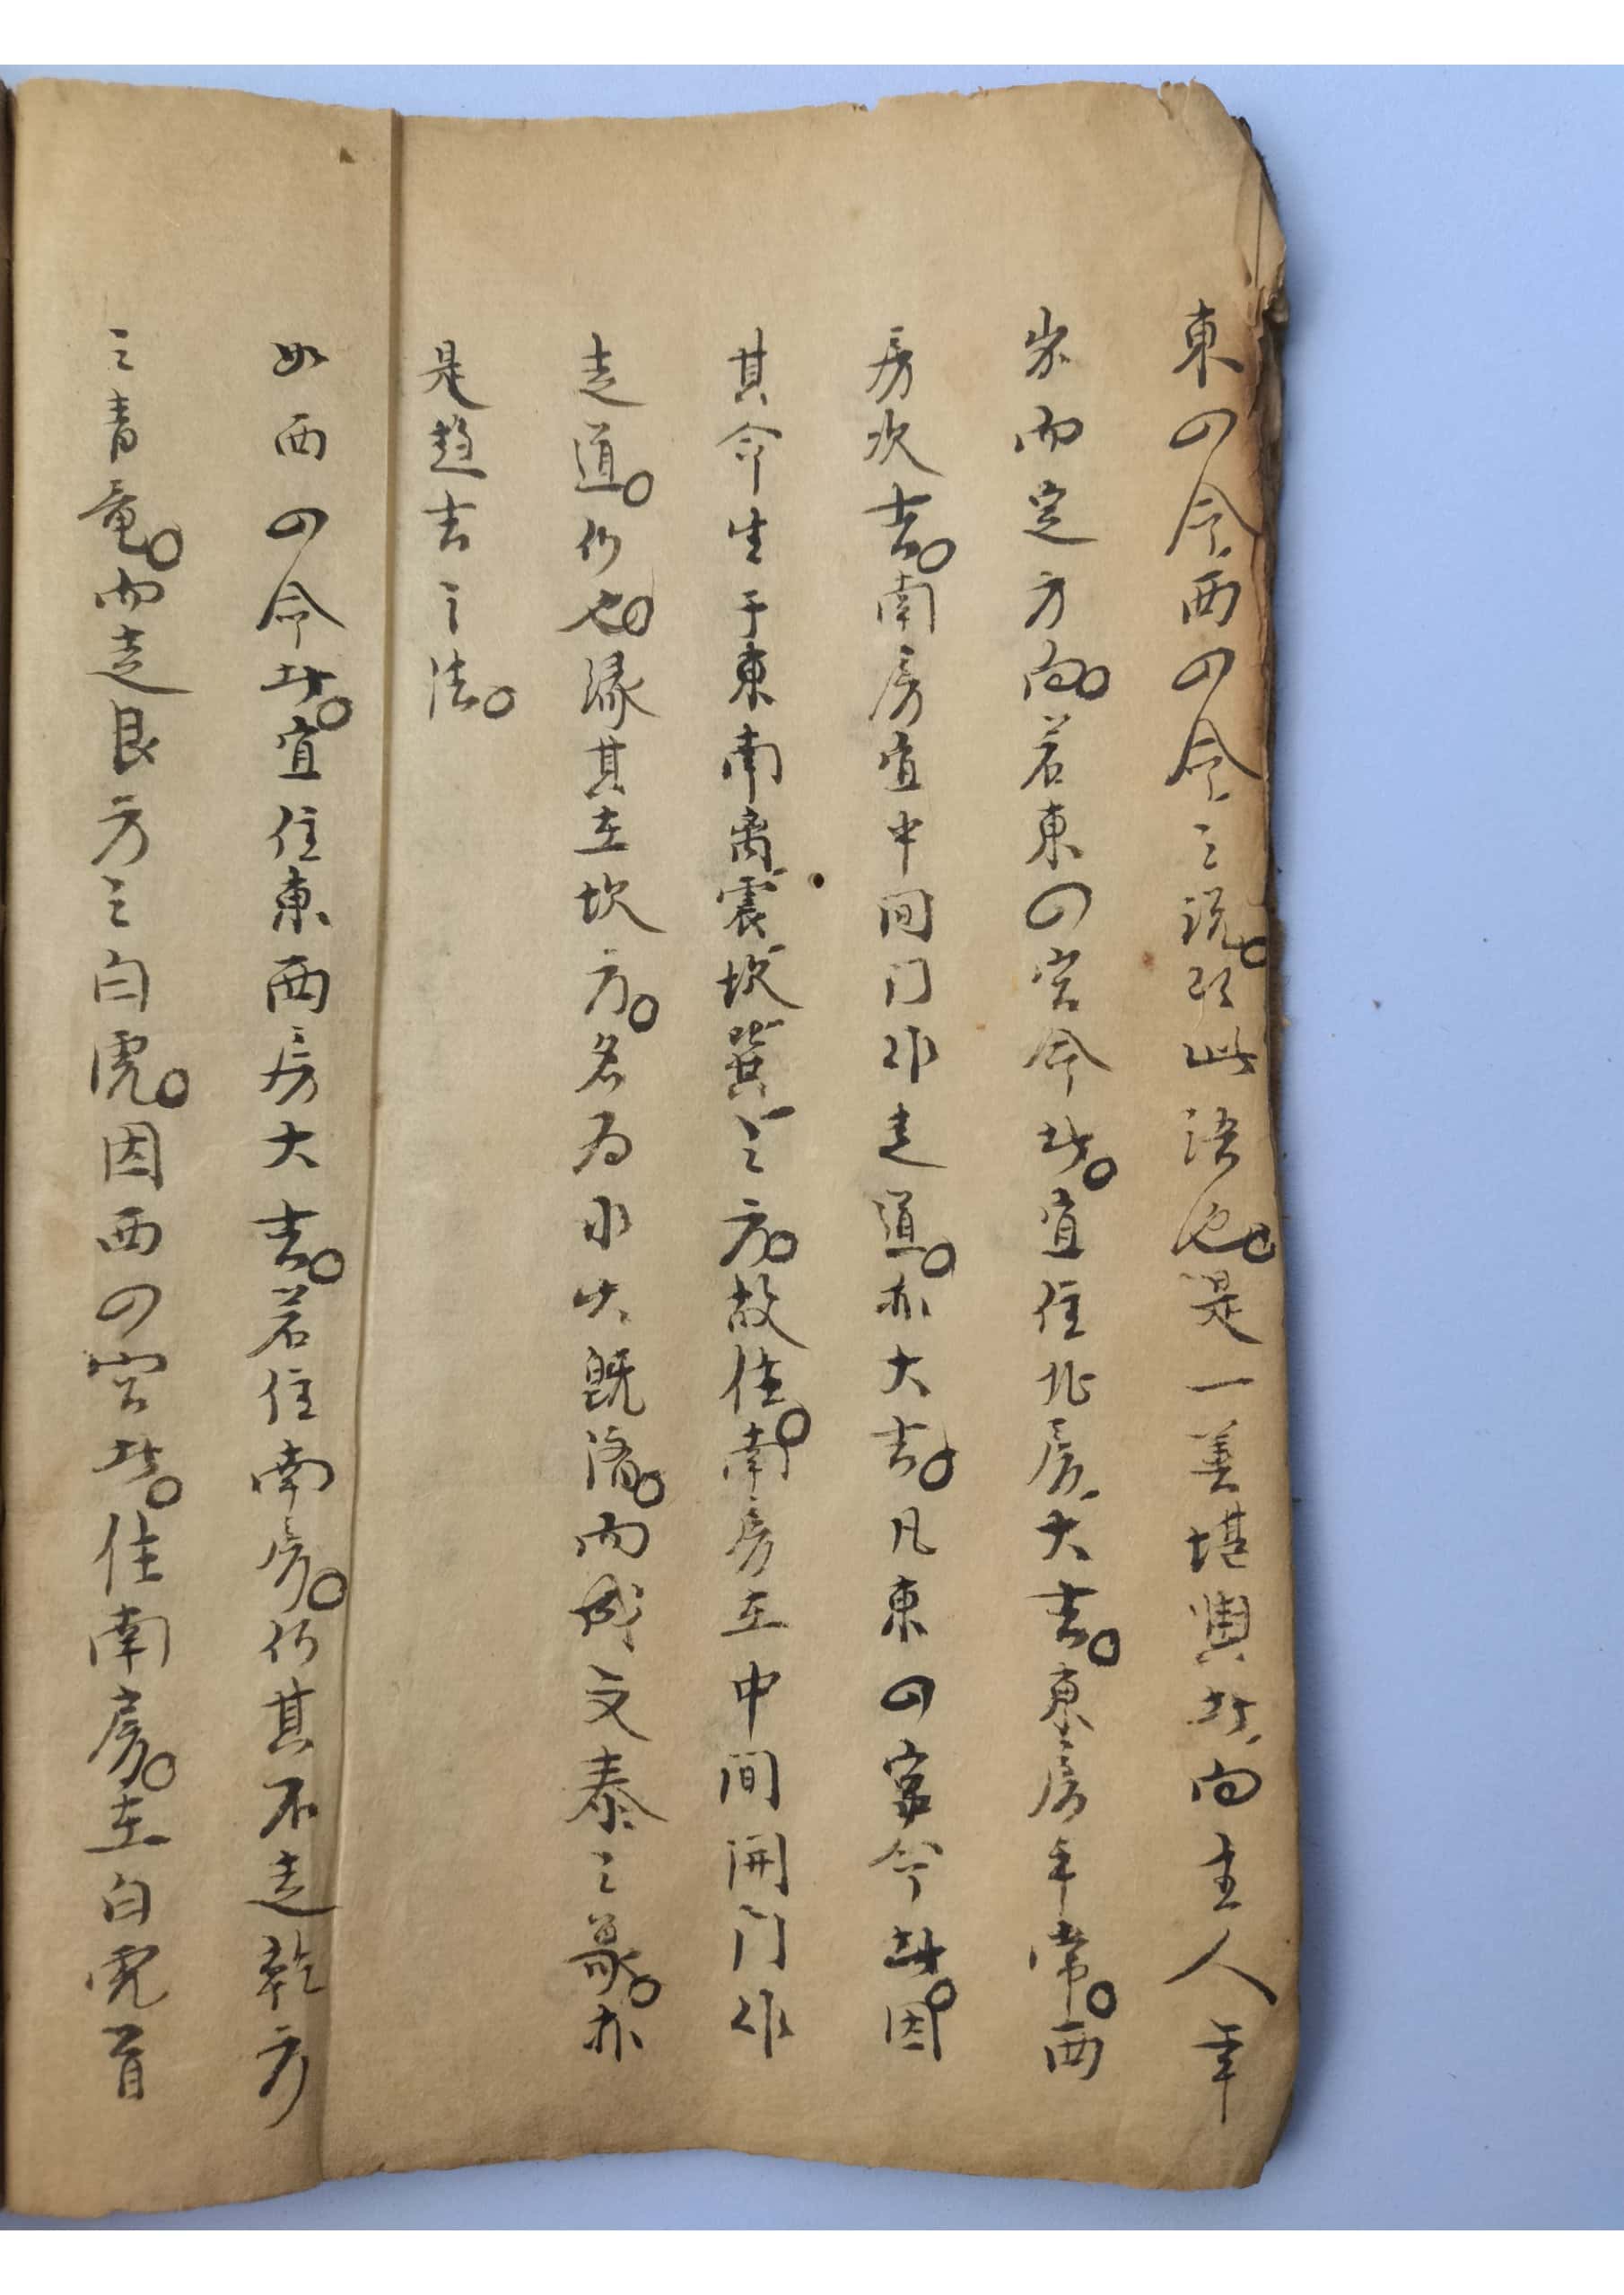 東四命西四命之説。即此語也。是一善堪輿者向主人年
岁而定方向。若東四宮命者。宜住北房大吉。東房平常。西
房次吉。南房宜中间门作走道。亦大吉。凡東四宮命者。因
其命生于東南离震坎巽之方。故住。南房在中间開门作
走道。仍也。緣其在坎方。名为水火既濟。而成文泰之象。亦
是趋吉之法。
如西四命者。宜住東西房大吉。若住南房。仍其不走乾方
之青竜。而走艮方之白虎。因西四宮者。住南房。在白虎首